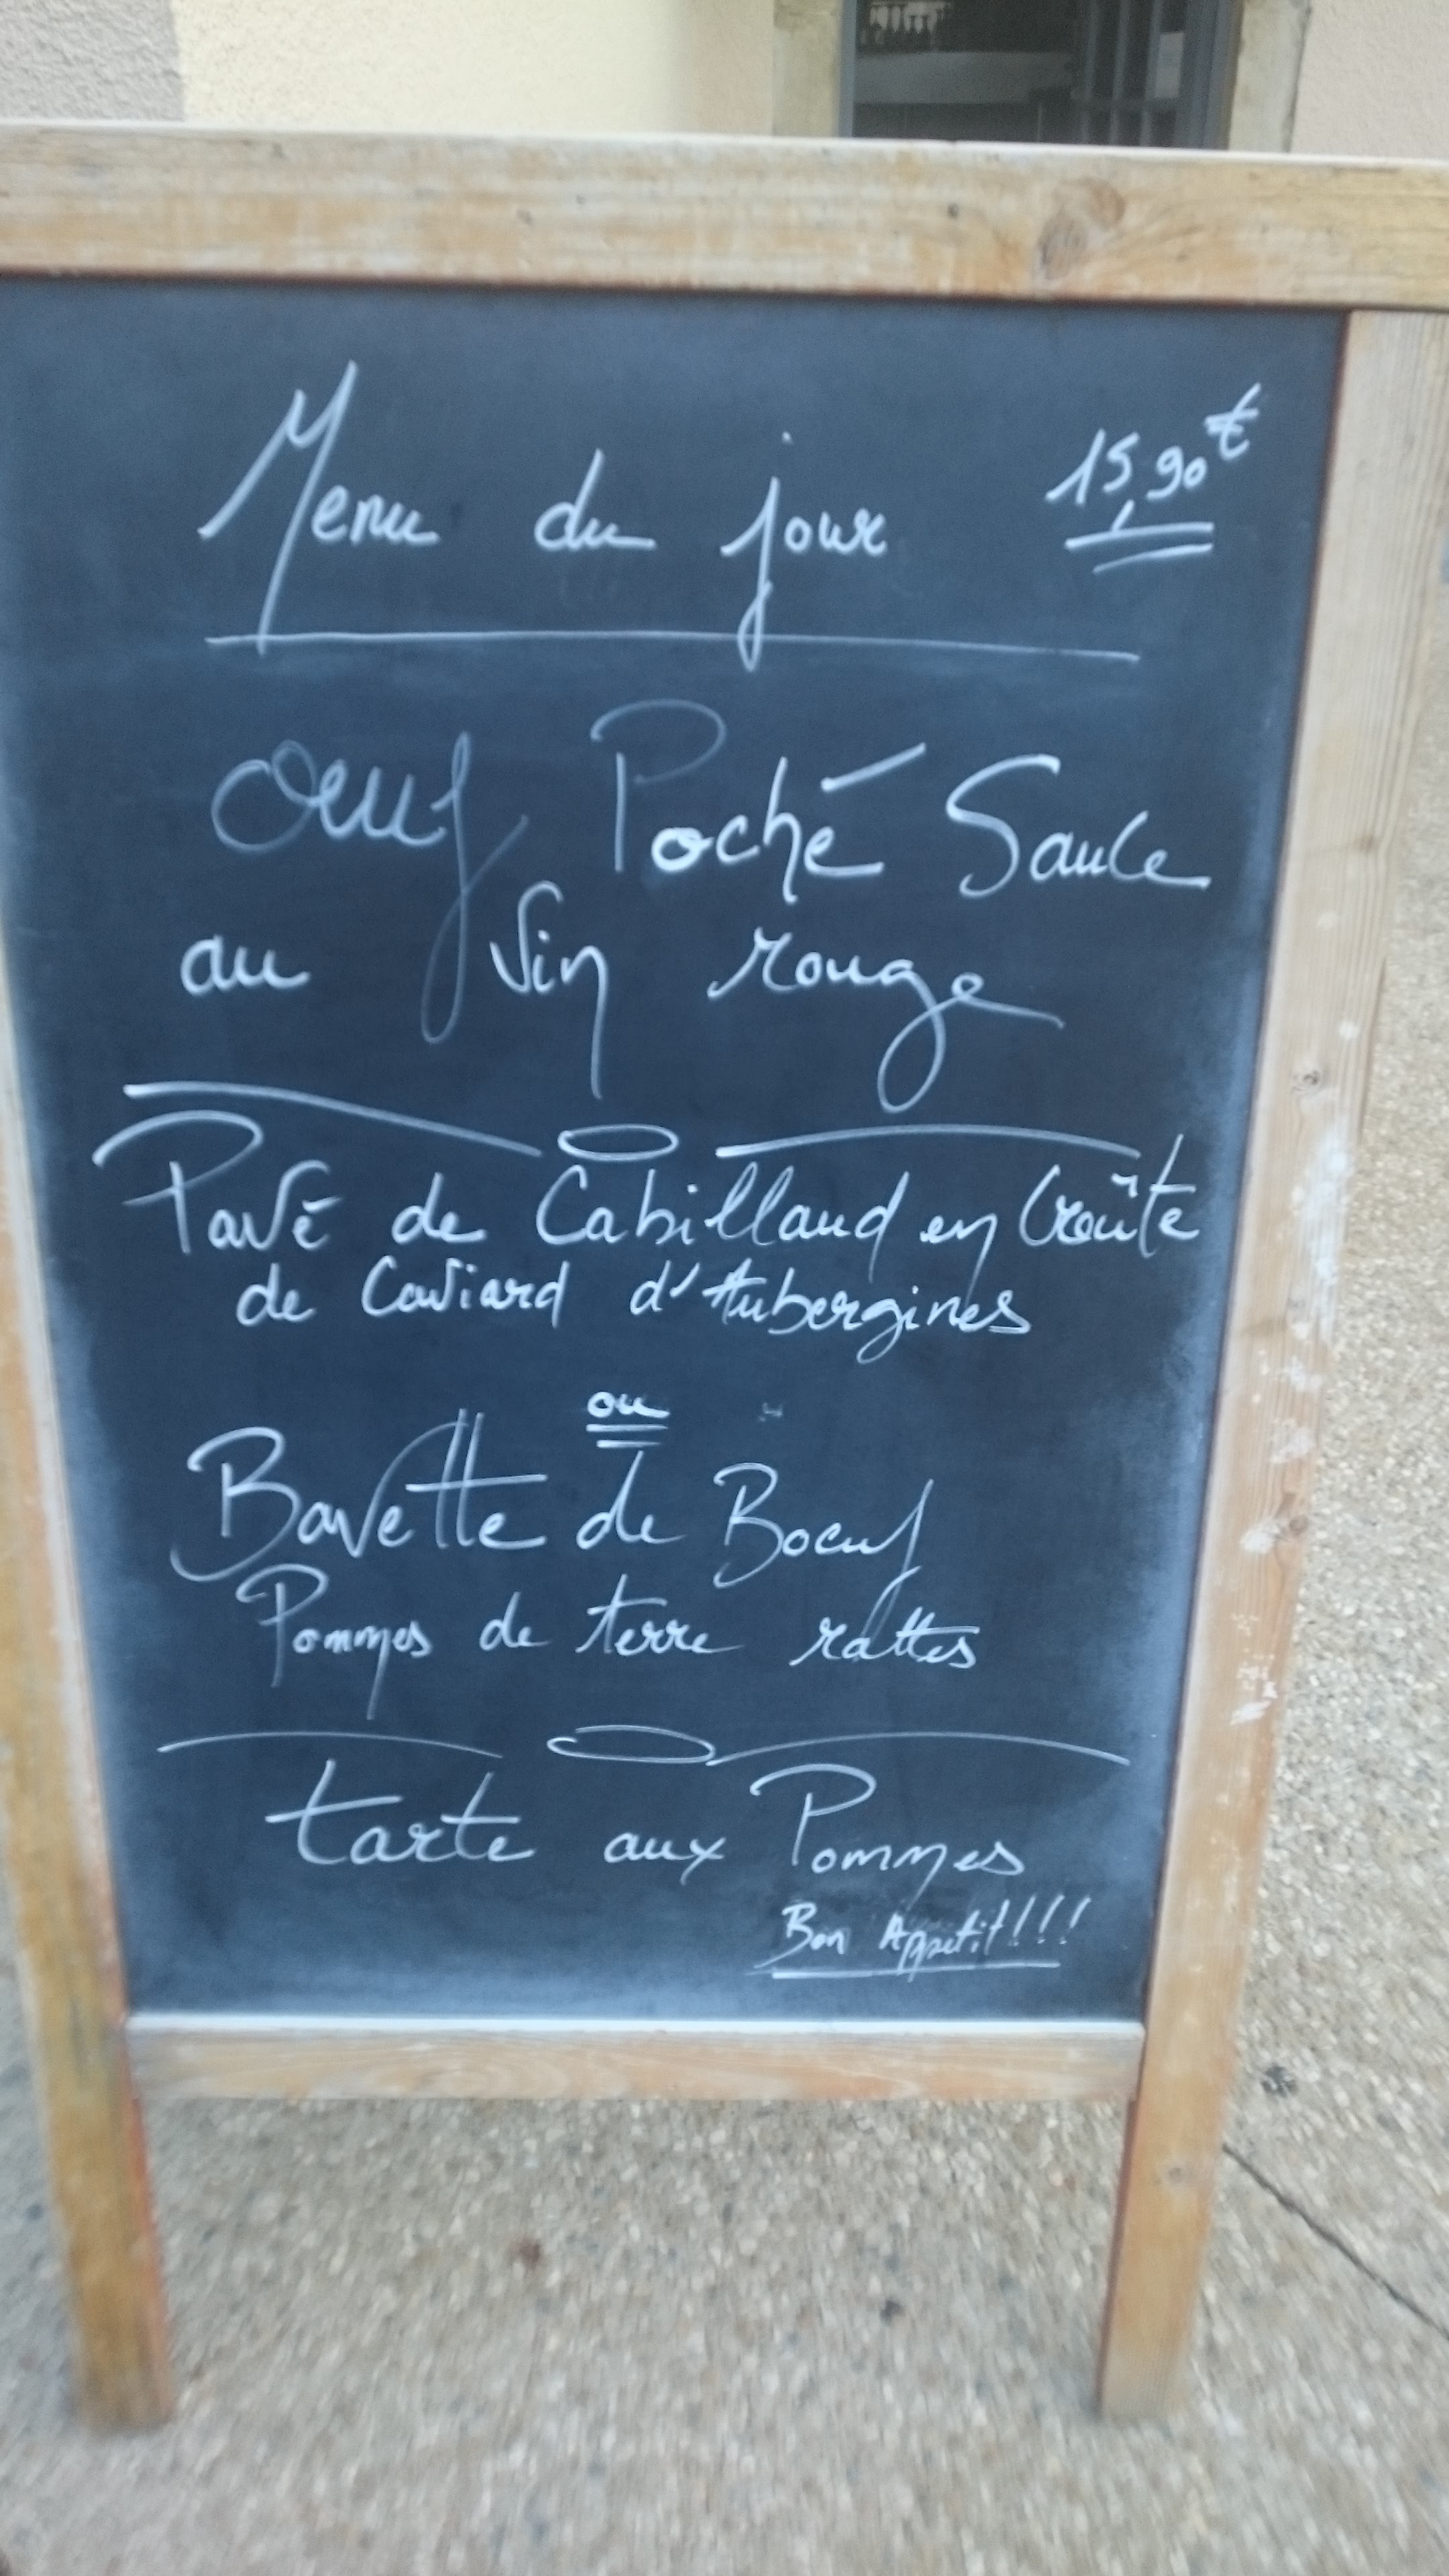 Menu du jour 15,90€
Oeuf Poché Sauce
au Vin rouge
Pavé de Cabillaud en Croûte
de Caviard d'Aubergines
ou
Bavette de Boeuf
Pommes de terre rattes
tarte aux Pommes
Bon Appétit!!!